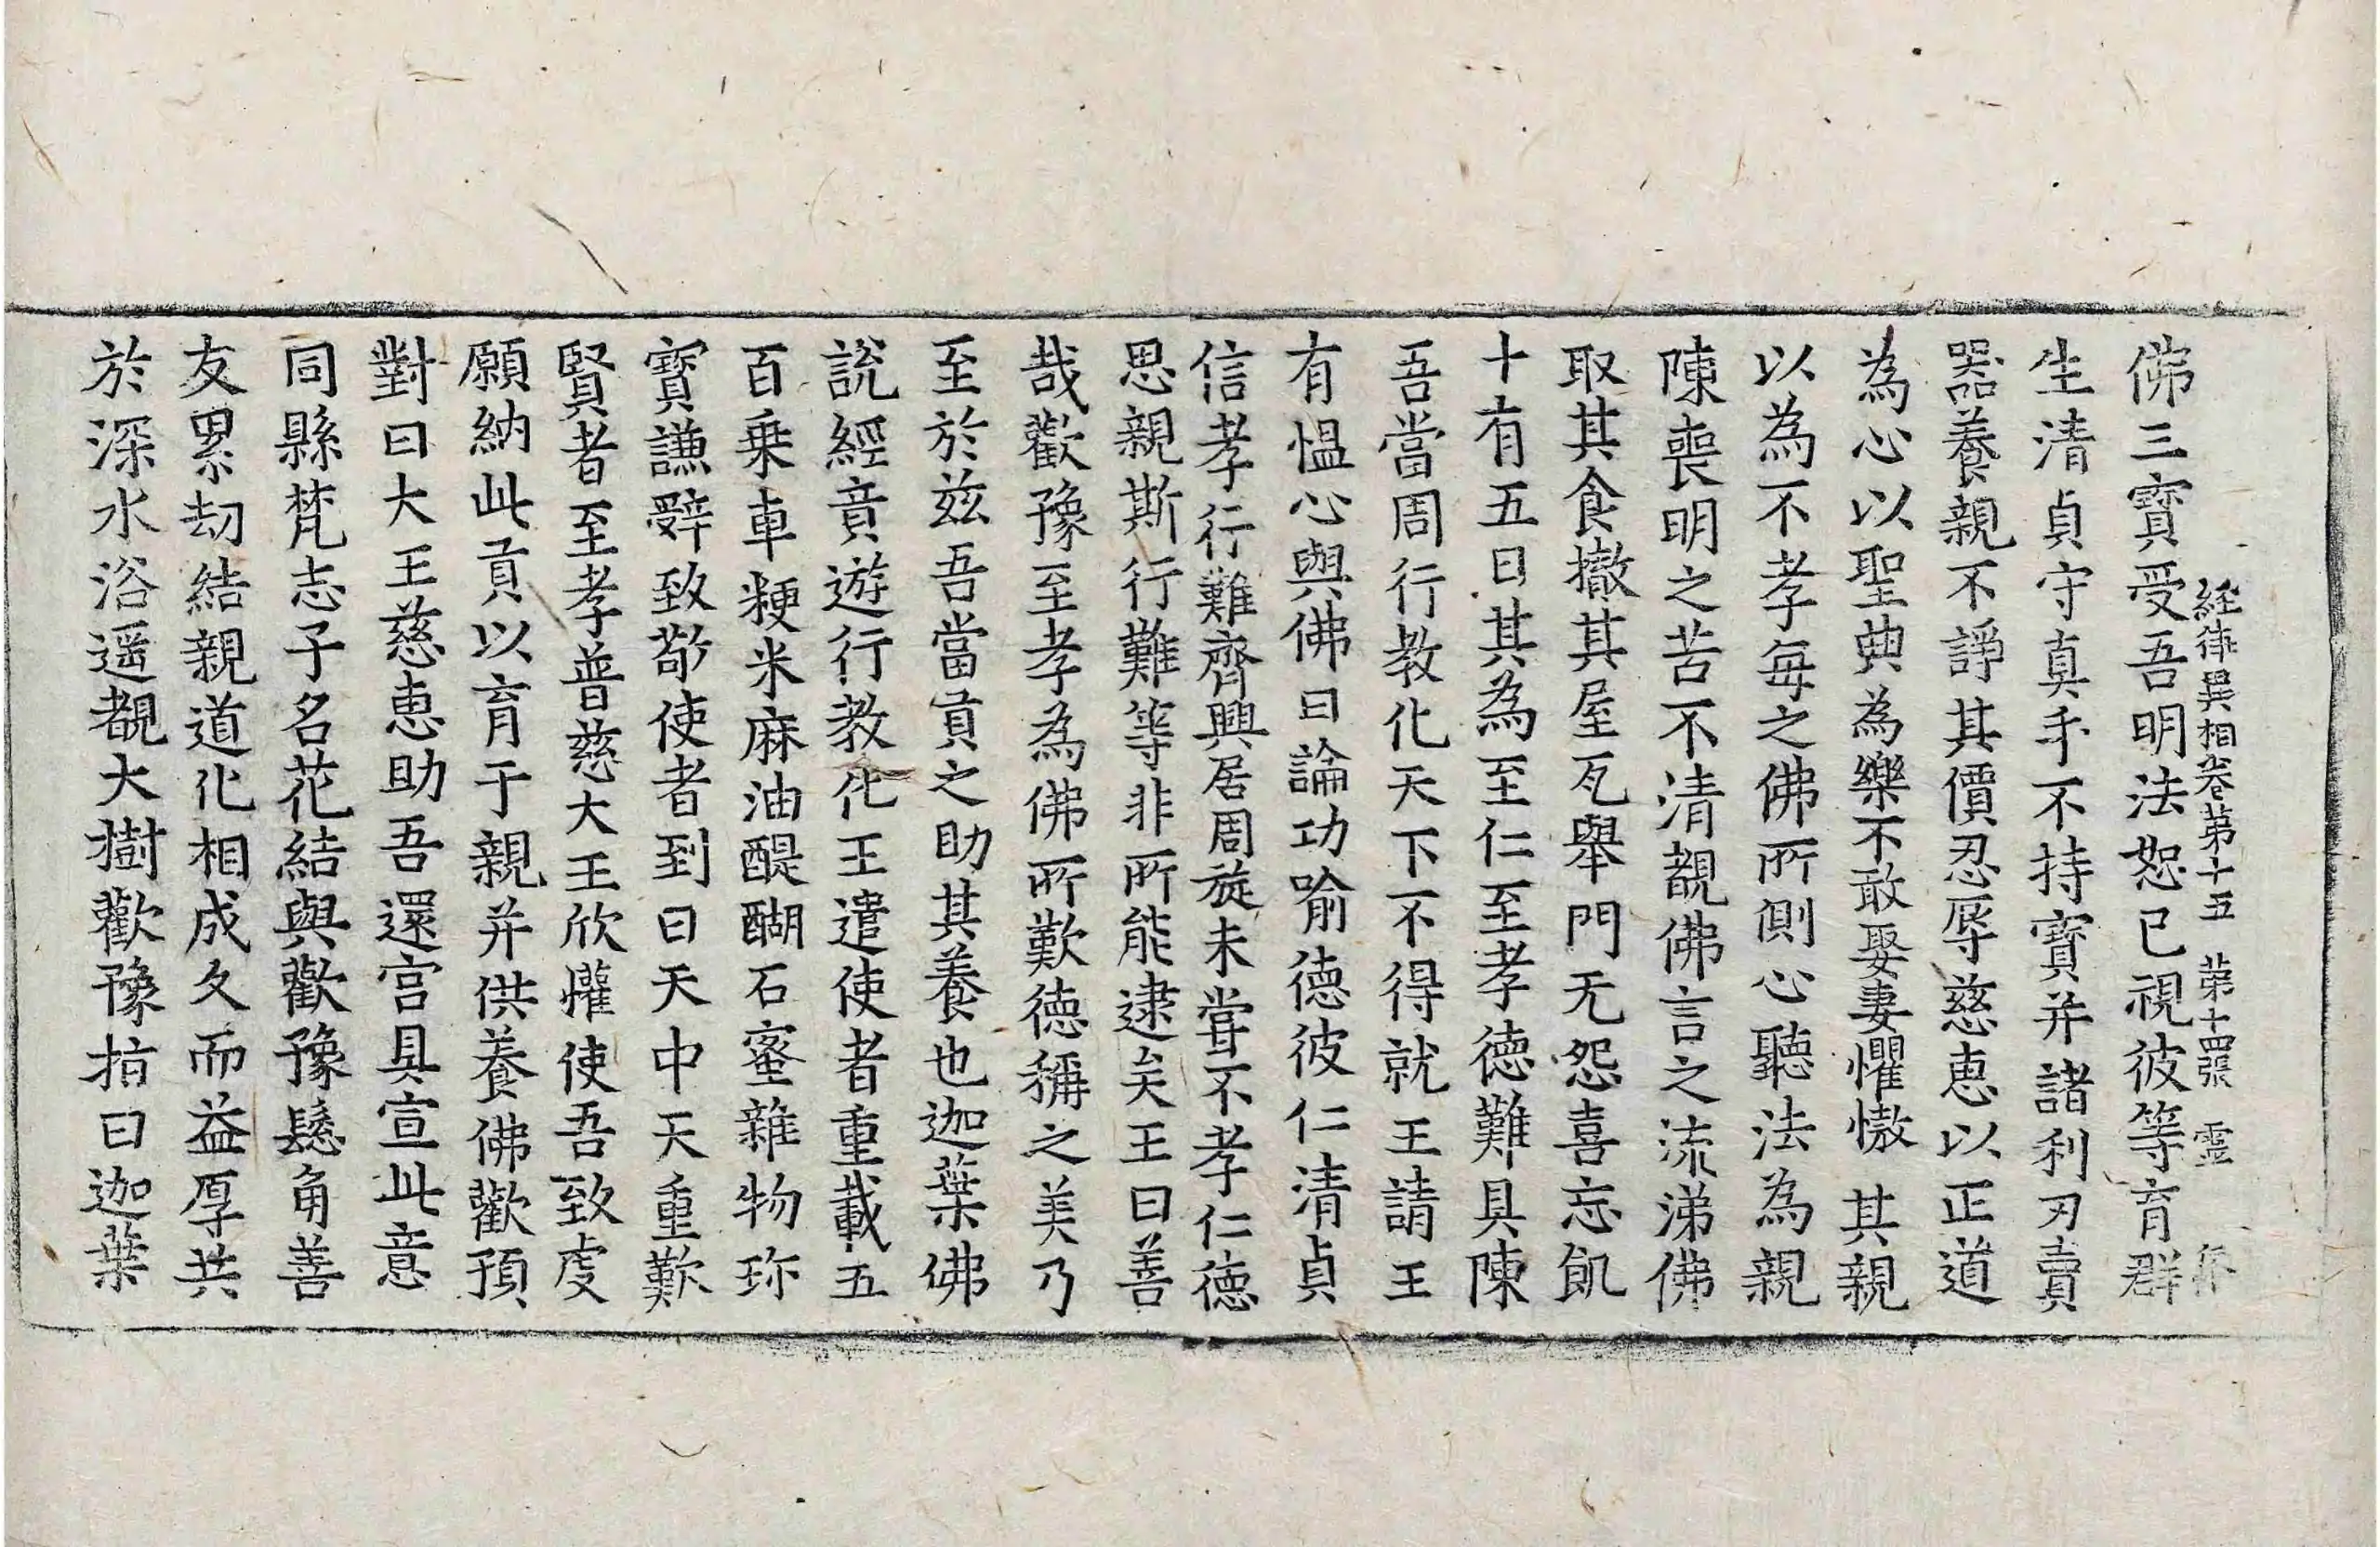 佛三寶受吾明法恕已視彼等育群
経律異相卷第十五 第十四張 霊
生清貞守真手不持寶并諸利刃賣
器養親不諍其價忍辱慈惠以正道
為心以聖典為樂不敢娶妻懼慠其親
以為不孝每之佛所側心聽法為親
陳喪明之苦不清覩佛言之流涕佛
取其食撤其屋瓦舉門无怨喜忘飢
十有五日其為至仁至孝德難具陳
吾當周行教化天下不得就王請王
有愠心與佛曰論功喻德彼仁清貞
信孝行難齊興居周旋未甞不孝仁德
思親斯行難等非所能逮矣王曰善
哉歡豫至孝為佛所歎德稱之美乃
至於兹吾當貢之助其養也迦葉佛
說經竟遊行教化王遣使者重載五
百乗車粳米麻油醍醐石蜜雜物珎
寶謙辝致敬使者到曰天中天重歎
賢者至孝普慈大王欣懽使吾致虔
願納此貢以育于親并供養佛歡預
對曰大王慈惠助吾還宫具宣此意
同縣梵志子名花結與歡豫髫角善
友累劫結親道化相成久而益厚共
於深水浴遥覩大樹歡豫指曰迦葉